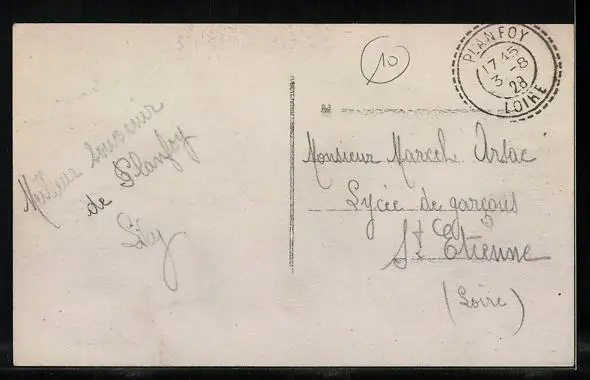 Meilleur souvenir
de Planfoy
Lily
10
PLANFOY
17 45
3 -8
28
LOIRE
Monsieur Marcel Arsac
Lycée de garçons
St Etienne
(Loire)